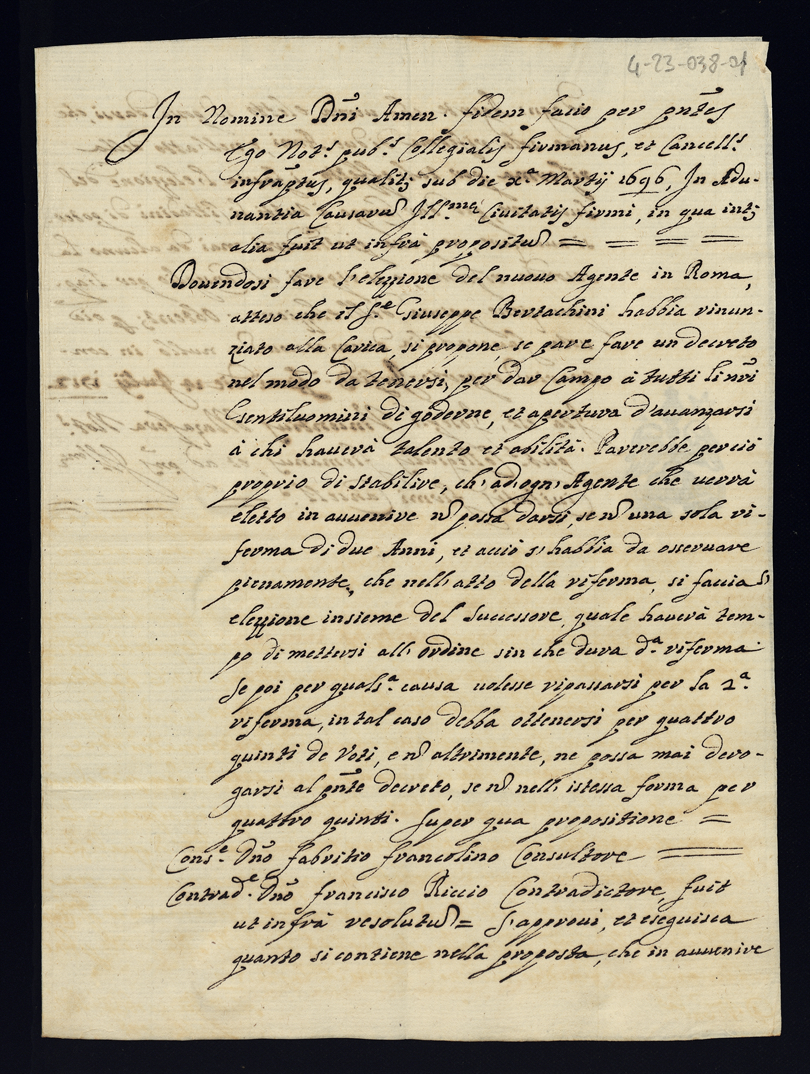 4-23-038-01
In Nomine Dñi Amen. fidem facio per pñtes
Ego Not.s pub.s Collegialis firmanus, et Cancell.s
infrãptus, qualit; sub die x.a Martij 1696, In Adu-
nantia Causarũ Ill.mæ Civitatis firmi, in qua int;
alia fuit ut infrà propositũ = = = =
Dovendosi fare l'elezzione del nuovo Agente in Roma,
atteso che il S.e Giuseppe Bertachini habbia rinun-
ziato alla Carica, si propone, se pare fare un decreto
nel modo da tenersi, per dar Campo à tutti li nri
Gentiluomini di goderne, et apertura d'avanzarsi
à chi haverà talento et abilità. Parerebbe perciò
proprio di stabilire, ch'ad ogn'Agente che verrà
eletto in avvenire nõ possa darsi, se nõ una sola ri-
ferma di due Anni, et acciò s'habbia da osservare
pienamente, che nell'atto della riferma, si faccia l'
elezzione insieme del Successore, quale haverà tem-
po di mettersi all'ordine sin che dura d.a riferma.
Se poi per quals.a causa volesse ripassarsi per la 2.a
riferma, in tal caso debba ottenersi per quattro
quinti de Voti, e nõ altrimente, ne possa mai dero-
garsi al pñte decreto, se nõ nell'istessa forma per
quattro quinti. Super qua propositione =
Cons.e Dño fabritio francolino Consultore =
Contrad.e Dño francisco Riccio Contradictore, fuit
ut infrà resolutũ = S'approvi, et eseguisca
quanto si contiene nella proposta, che in avvenire